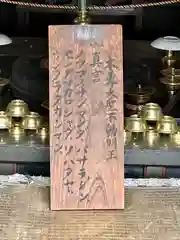 本尊大聖不動明王
真言
ノウマクサンマンダ バサラダン
センダマカロシャダ ソハタヤ
ウンタラタカンマン